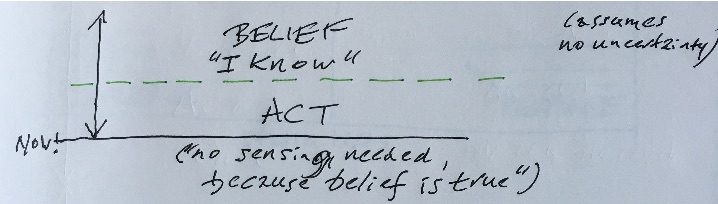 BELIEF
"I Know"
(assumes
no uncertainty)
ACT
Now!
("no sensing needed,
because belief is true")